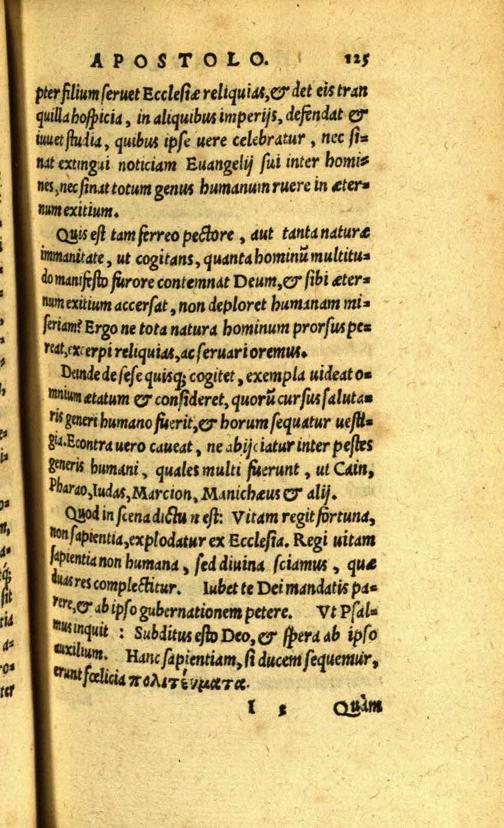 APOSTOLO. 125
pter filium seruet Ecclesiæ reliquias, & det eis tran
quilla hospicia, in aliquibus imperijs, defendat &
iuuet studia, quibus ipse uere celebratur, nec si=
nat extingui noticiam Euangelij sui inter homi=
nes, nec sinat totum genus humanum ruere in æter=
num exitium.
Quis est tam ferreo pectore, aut tanta naturæ
immanitate, ut cogitans, quanta hominũ multitu=
do manifesto furore contemnat Deum, & sibi æter=
num exitium accersat, non deploret humanam mi=
seriam? Ergo ne tota natura hominum prorsus pe=
reat, excerpi reliquias, ac seruari oremus.
Deinde de sese quisq; cogitet, exempla uideat o=
mnium ætatum & consideret, quorũ cursus saluta=
ris generi humano fuerit, & horum sequatur uesti=
gia. Econtra uero caueat, ne abijciatur inter pestes
generis humani, quales multi fuerunt, ut Cain,
Pharao, Iudas, Marcion, Manichæus & alij.
Quod in scena dictu n est: Vitam regit fortuna,
non sapientia, explodatur ex Ecclesia. Regi uitam
sapientia non humana, sed diuina sciamus, quæ
duas res complectitur. Iubet te Dei mandatis pa=
rere, & ab ipso gubernationem petere. Vt Psal=
mus inquit : Subditus esto Deo, & spera ab ipso
auxilium. Hanc sapientiam, si ducem sequemur,
erunt fœlicia πολιτέυματα.
I 5 Quàm